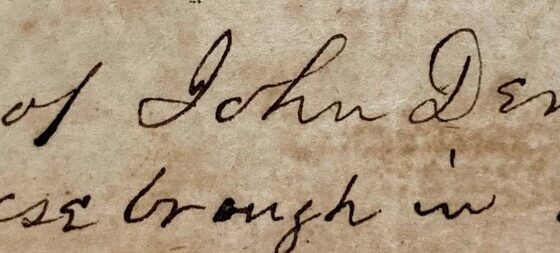 of John Den
ese brough in